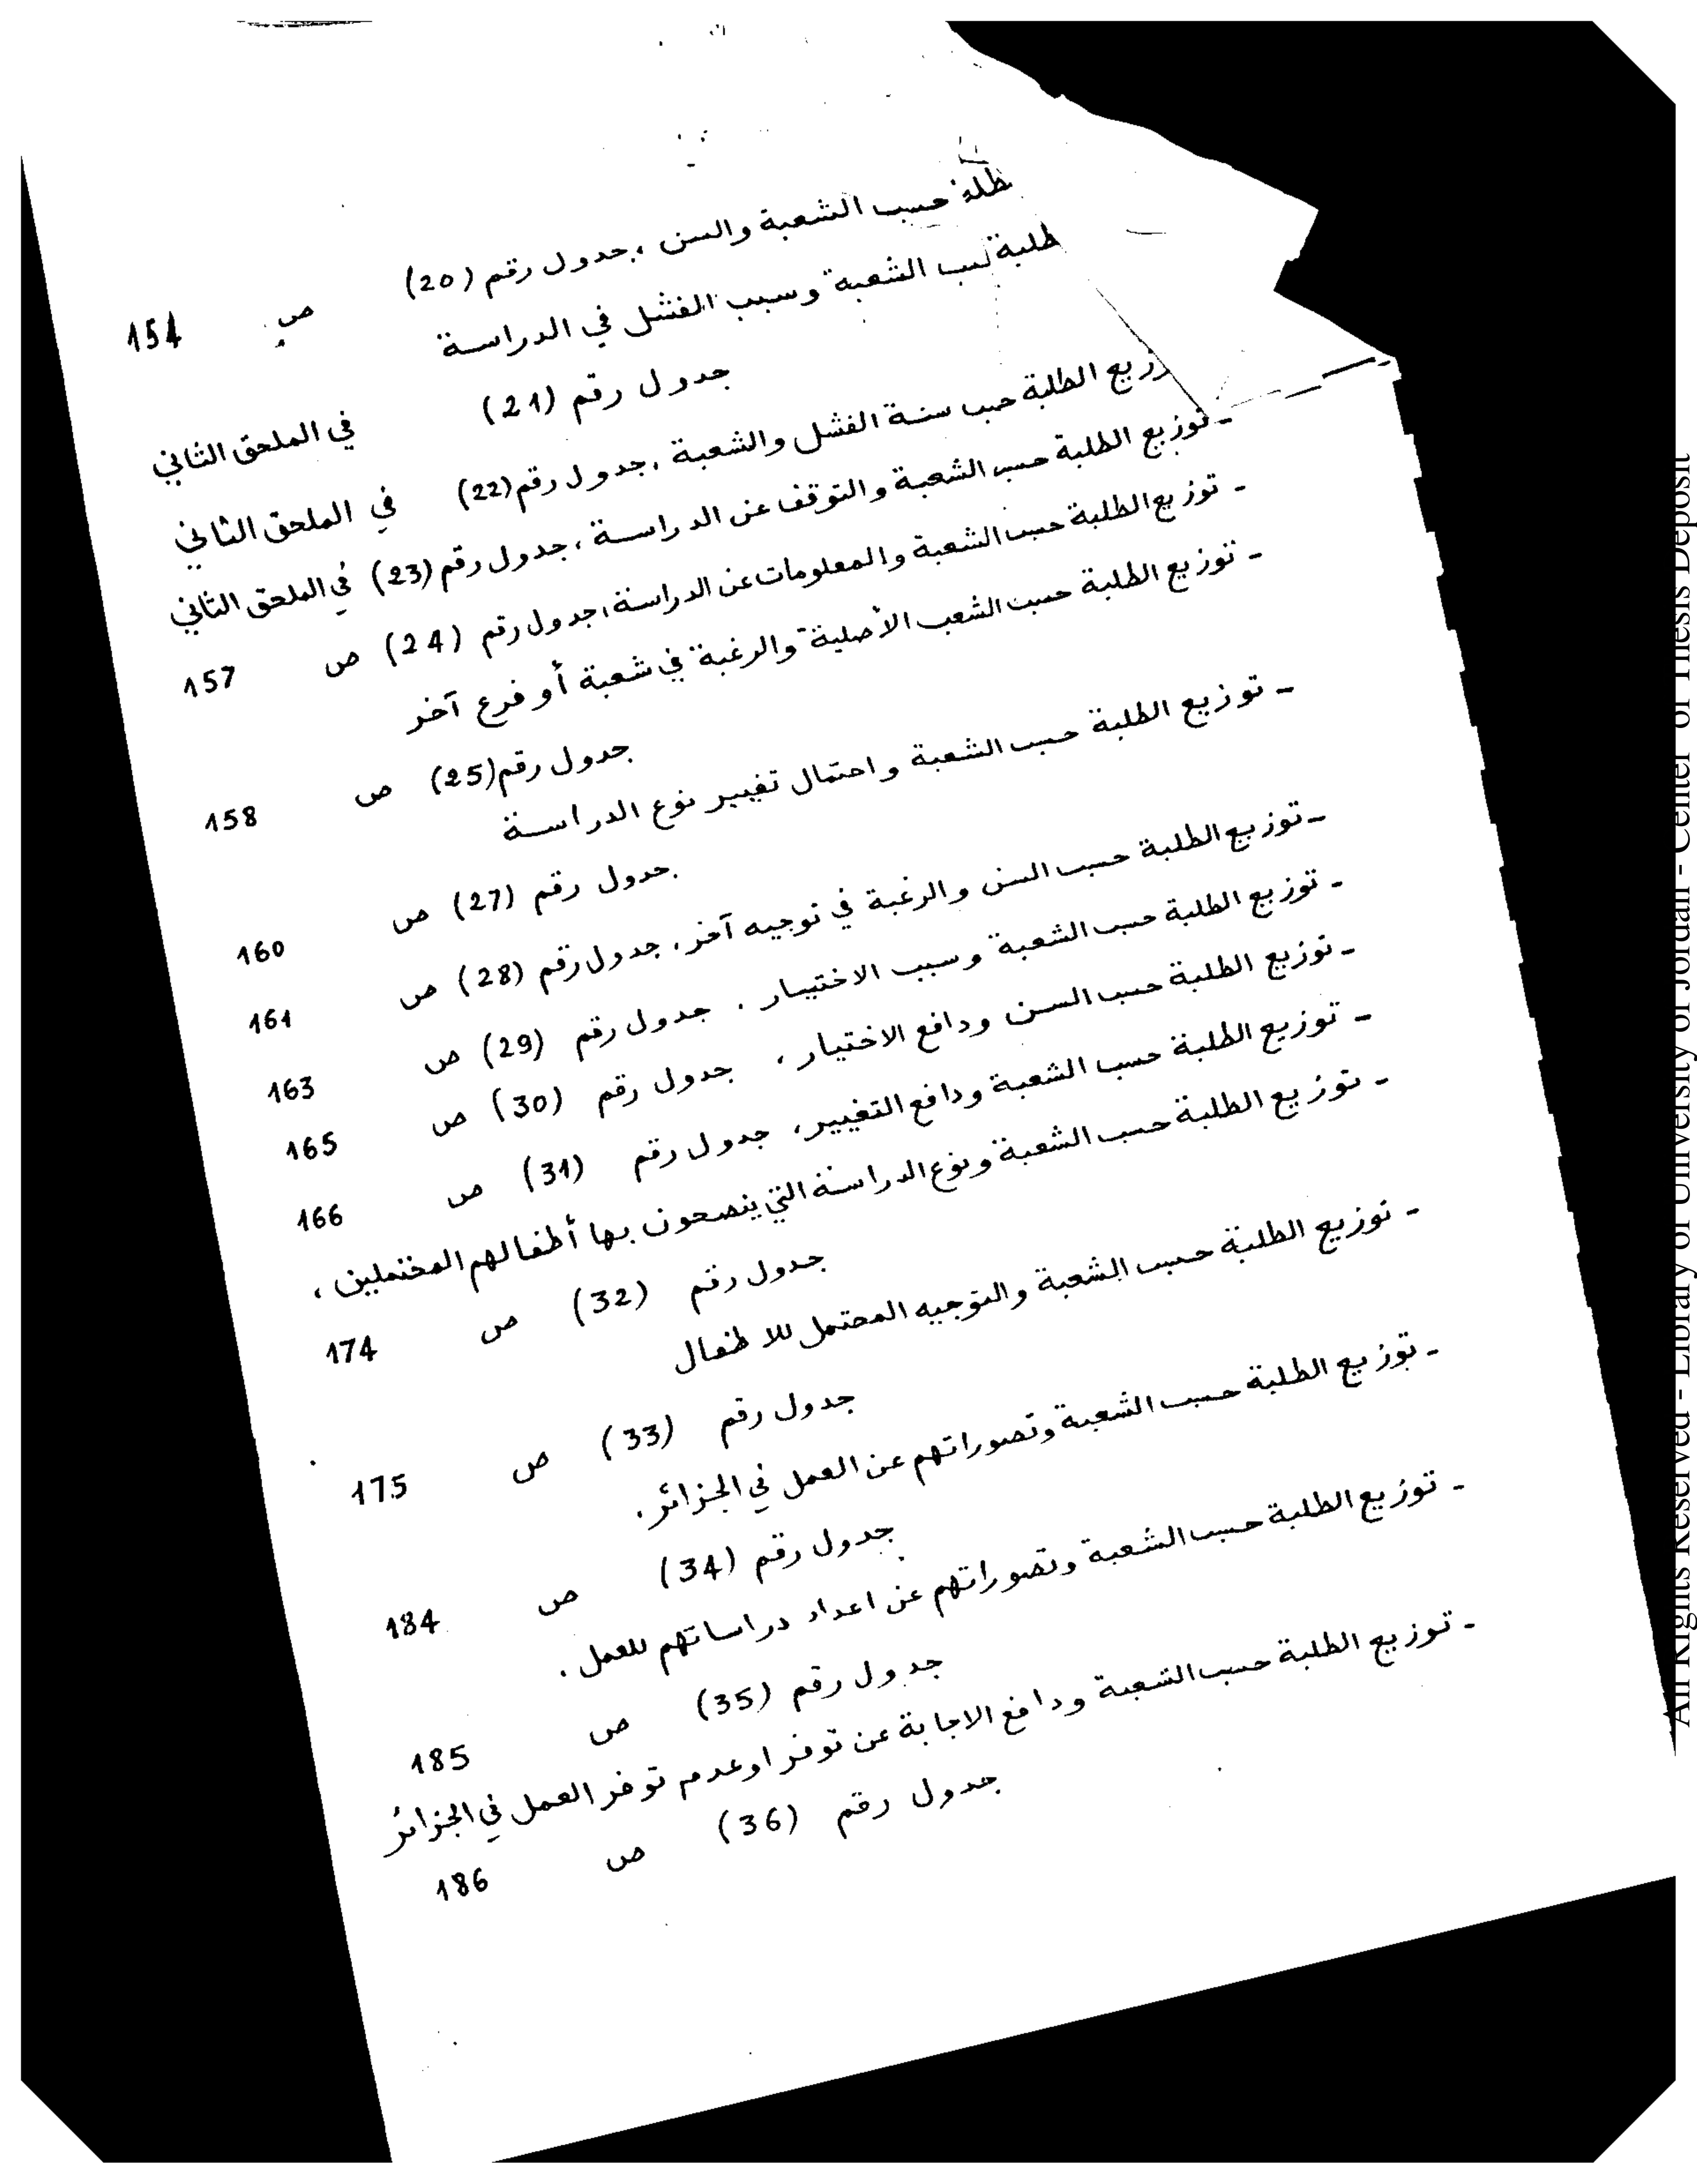 حسب الشعبة والسن ، جدول رقم (20) ص 154
الشعبة وسبب الفشل في الدراسة
جدول رقم (21) في الملحق الثاني
الطلبة حسب سنة الفشل والشعبة ، جدول رقم (22) في الملحق الثاني
ـ توزيع الطلبة حسب الشعبة والتوقف عن الدراسة ، جدول رقم (23) في الملحق الثاني
ـ توزيع الطلبة حسب الشعبة والمعلومات عن الدراسة ، جدول رقم (24) ص 157
ـ توزيع الطلبة حسب الشعب الأصلية والرغبة في شعبة أو فرع آخر
جدول رقم (25) ص 158
ـ توزيع الطلبة حسب الشعبة واحتمال تغيير نوع الدراسة
جدول رقم (27) ص 160
ـ توزيع الطلبة حسب السن والرغبة في توجيه آخر ، جدول رقم (28) ص 161
ـ توزيع الطلبة حسب الشعبة وسبب الاختيار . جدول رقم (29) ص 163
ـ توزيع الطلبة حسب السن ودافع الاختيار ، جدول رقم (30) ص 165
ـ توزيع الطلبة حسب الشعبة ودافع التغيير ، جدول رقم (31) ص 166
ـ توزيع الطلبة حسب الشعبة ونوع الدراسة التي ينصحون بها أطفالهم المحتملين ،
جدول رقم (32) ص 174
ـ توزيع الطلبة حسب الشعبة والتوجيه المحتمل للاطفال
جدول رقم (33) ص 175
ـ توزيع الطلبة حسب الشعبة وتصوراتهم عن العمل في الجزائر .
جدول رقم (34) ص 184
ـ توزيع الطلبة حسب الشعبة وتصوراتهم عن اعداد دراساتهم للعمل .
جدول رقم (35) ص 185
ـ توزيع الطلبة حسب الشعبة ودافع الاجابة عن توفر او عدم توفر العمل في الجزائر
جدول رقم (36) ص 186
All Rights Reserved - Library of University of Jordan - Center of Thesis Deposit